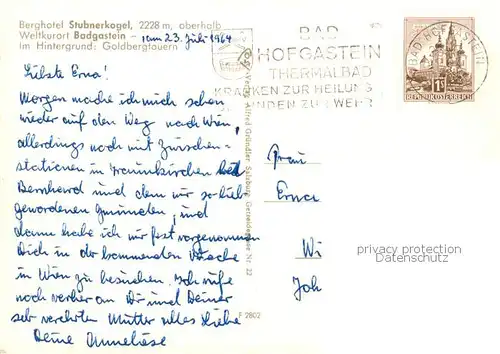 Berghotel Stubnerkogel, 2228 m, oberhalb
Weltkurort Badgastein –
Im Hintergrund: Goldbergtauern
am 23. Juli 1964
Liebste Erna!
Morgen mache ich mich schon
wieder auf den Weg nach Wien,
allerdings noch mit Zwischen-
stationen in Traunkirchen bei
Bernhard und dem mir so lieb
gewordenen Gmunden, und
dann habe ich mir fest vorgenommen
Dich in der kommenden Woche
in Wien zu besuchen. Ich rufe
noch vorher an Dir und Deiner
sehr verehrten Mutter alles Liebe
Deine Anneliese
Verlag Alfred Gründler, Salzburg, Getreidegasse Nr. 22
F 2802
BAD
HOFGASTEIN
THERMALBAD
KRANKEN ZUR HEILUNG
GESUNDEN ZUR WEHR
BAD HOFGASTEIN
1S
REPUBLIK ÖSTERREICH
Frau
Erna
Wi
Joh
privacy protection
Datenschutz